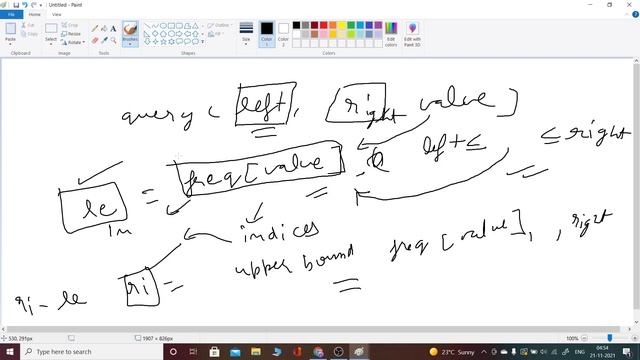 Untitled - Paint
File Home View
Paste Cut Copy Select Crop Resize Rotate Brushes Outline Fill Size Color 1 Color 2 Edit colors Edit with Paint 3D
Clipboard Image Tools Shapes Colors
query ( left, right value ]
left ≤ ≤ right
le = freq [value]
In
indices
upper bound freq [value], , right
ri - le ri =
530, 291px 1907 × 826px 100%
Type here to search 23°C Sunny ENG 04:54 21-11-2021